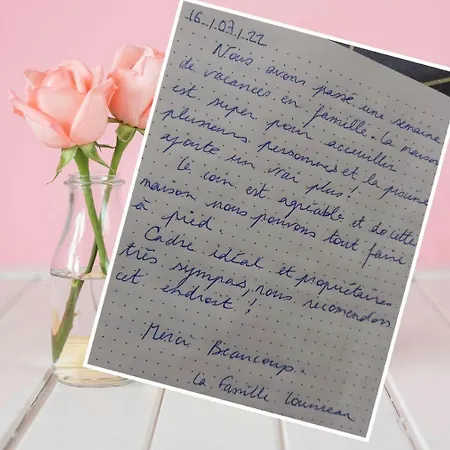 16/07/22
Nous avons passé une semaine
de vacances en famille. La maison
est super pour accueillir
plusieurs personnes et la piscine
ajoute un vrai plus !
Le coin est agréable et de cette
maison nous pouvons tout faire
à pied.
Cadre idéal et propriétaires
très sympas, nous recomendons
cet endroit !
Merci Beaucoup.
La famille